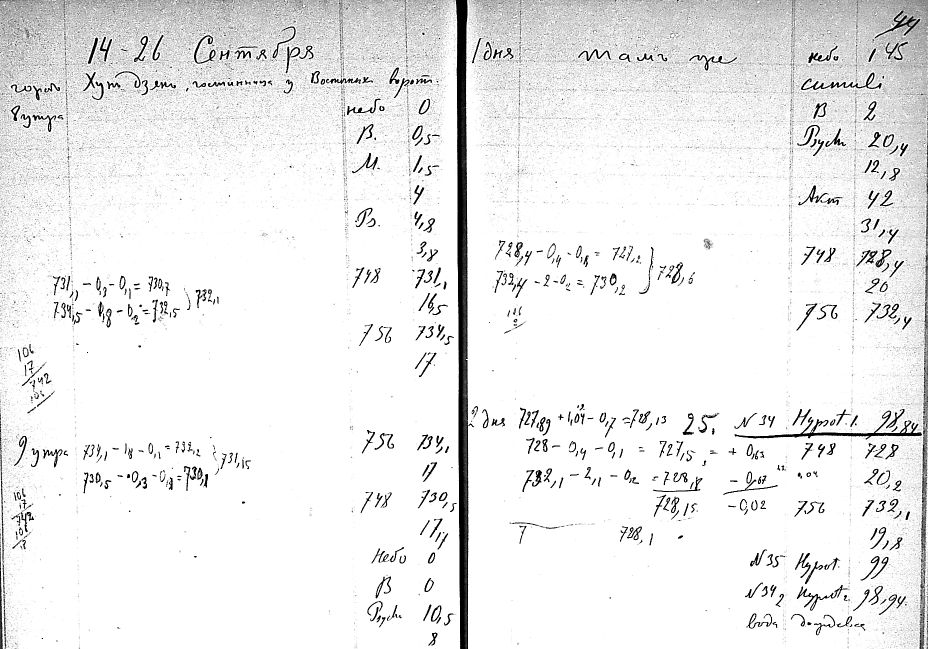 14-26 Сентября
городъ Хутъ дзянь, гостинница у Восточных ворот.
8 утра
небо 0
В. 0,5
М. 1,5
4
Ps. 4,8
3,8
731,1 - 0,3 - 0,1 = 730,7 748 731,1
734,5 - 1,8 - 0,2 = 732,5 } 732,1 16,5
756 734,5
17
106
17
742
106
9 утра 734,1 - 1,8 - 0,1 = 732,2 756 734,1
730,5 - 0,3 - 0,1 = 730,1 } 731,15 17
748 730,5
17,1
106
17
742
106
Небо 0
В 0
Psych 10,5
8
44
1 дня тамъ же небо 1 45
cumuli
В 2
Psych 20,4
12,8
Акт 42
31,4
728,4 - 0,4 - 0,8 = 727,2 748 728,4
732,4 - 2 - 0,2 = 730,2 } 728,6 20
756 732,4
106
2 дня 727,89 + 1,04 - 0,7 = 728,13 25. N 34 Hypsot. 1. 98,84
728 - 0,4 - 0,1 = 727,5 = + 0,63 748 728
732,1 - 2,1 - 0,2 = 728,8 - 0,67 0,04 20,2
728,15 -0,02 756 732,1
7 728,1 19,8
N 35 Hypsot. 99
N 34 2 Hypsot 2 98,94.
вода дождевая